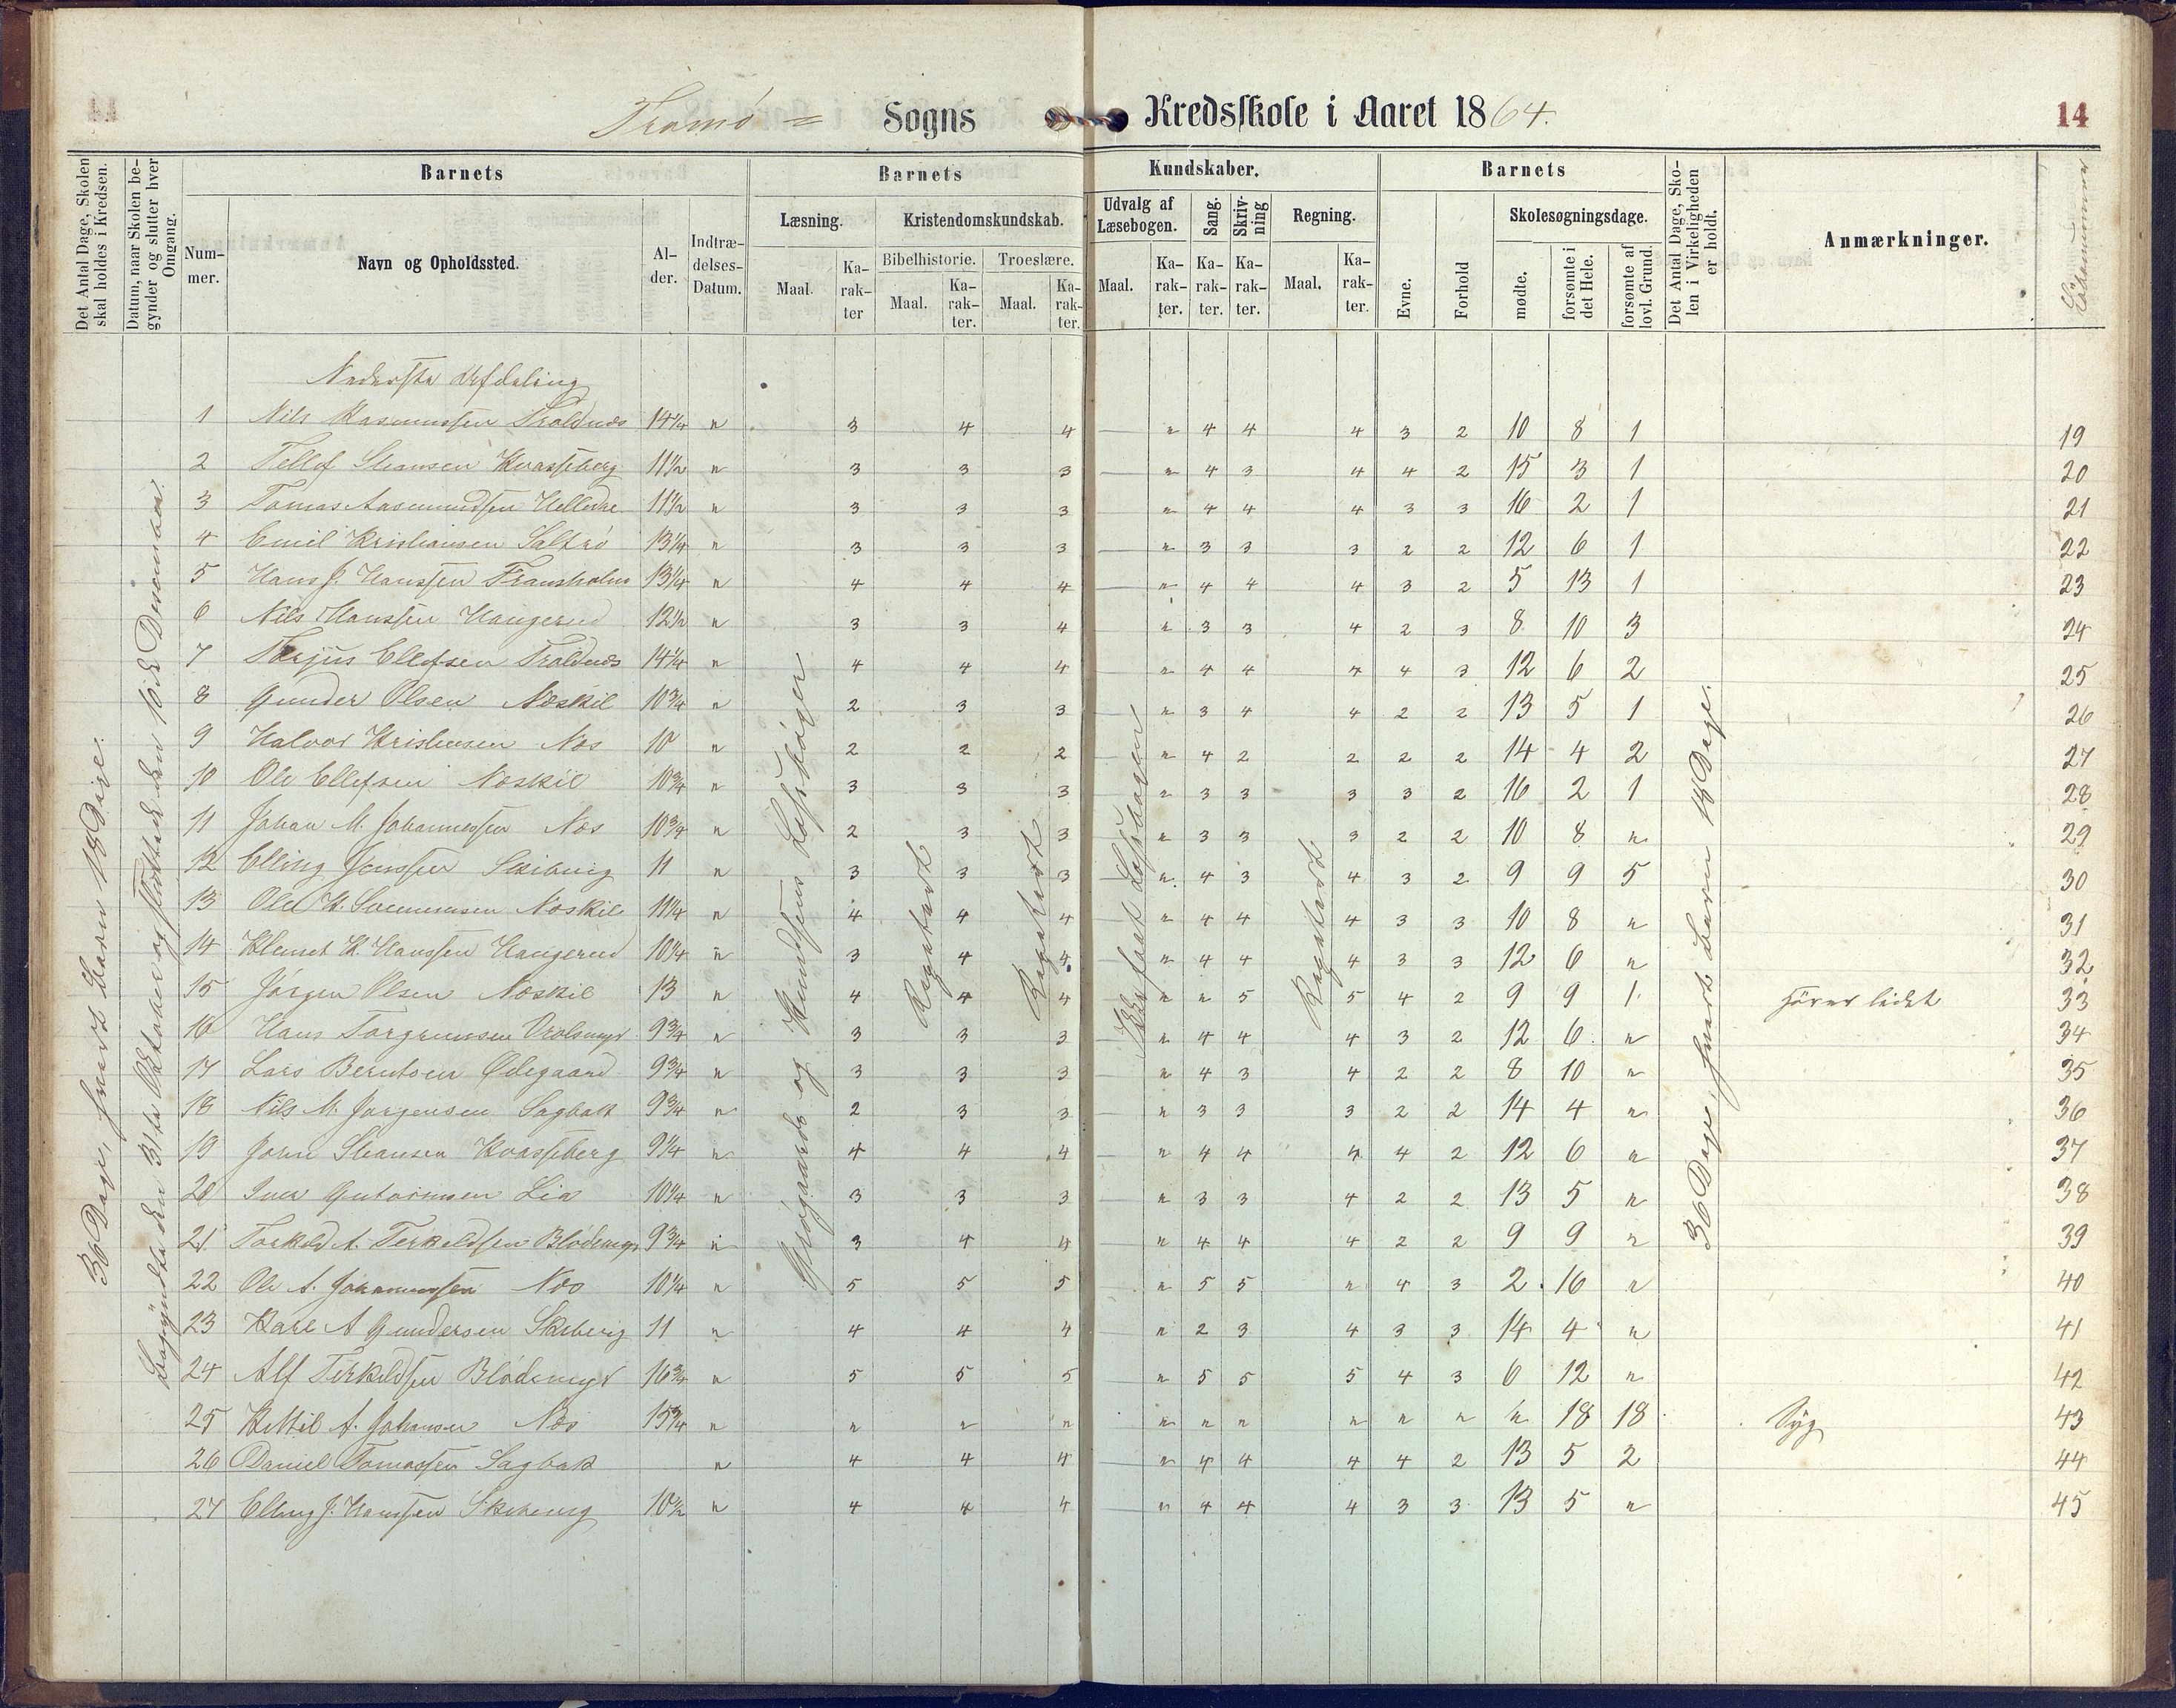 Tromø = Sogns Kredsskole i Aaret 1864. 14
Det Antal Dage, Skolen skal holdes i Kredsen.
Datum, naar Skolen begynder og slutter hver Omgang.
Barnets
Nummer.
Navn og Opholdssted.
Alder.
Indtrædelses-Datum.
Barnets Kundskaber.
Læsning.
Maal.
Karakter
Kristendomskundskab.
Bibelhistorie.
Maal.
Karakter.
Troeslære.
Maal.
Karakter.
Udvalg af Læsebogen.
Maal.
Karakter.
Sang.
Karakter.
Skrivning
Karakter.
Regning.
Maal.
Karakter.
Barnets
Evne.
Forhold
Skolesøgningsdage.
mødte.
forsømte i det Hele.
forsømte af lovl. Grund.
Det Antal Dage, Skolen i Virkeligheden er holdt.
Anmærkninger.
36 Dage, hvert Barn 18 Dage.
Begyndte den 31te Oktober og sluttede den 16de Desember.
Nederste Afdeling
1 Nils Rasmussen Troldnes 14¼ " 3 4 4 " 4 4 4 3 2 10 8 1 19
2 Tellef Steansen Kvassheberg 11½ " 3 3 3 " 4 3 4 4 2 15 3 1 20
3 Tomas Aasmundsen 11½ " 3 3 3 " 4 4 4 3 3 16 2 1 21
4 Emil Kristiansen Saltrø 13¼ " 3 3 3 " 3 3 3 2 2 12 6 1 22
5 Hans J. Hanssen 13¼ " 4 4 4 " 4 4 4 3 2 5 13 1 23
6 Nils Hanssen Haugerud 12½ " 3 3 4 " 3 3 4 2 3 8 10 3 24
7 Terjus Ellefsen Troldnes 14¼ " 4 4 4 " 4 4 4 4 3 12 6 2 25
8 Gunder Olsen Næskil 10¾ " 2 3 3 " 3 4 4 2 2 13 5 1 26
9 Halvor Kristensen Næs 10 " 2 2 2 " 4 2 2 2 2 14 4 2 27
10 Ole Ellefsen Næskil 10¾ " 3 3 3 " 3 3 3 3 2 16 2 1 28
11 Johan M. Johannessen Næs 10¾ " 2 3 3 " 3 3 3 2 2 10 8 " 29
12 Elling Jenssen Skibvig 11 " 3 3 3 " 4 3 4 3 2 9 9 5 30
13 Ole H. Næskil 11¼ " 4 4 4 " 4 4 4 3 3 10 8 " 31
14 Klemet H. Hanssen Haugerud 10¼ " 3 4 4 " 4 4 4 3 3 12 6 " 32
15 Jørgen Olsen Næskil 13 " 4 4 4 " " 5 5 4 2 9 9 1 hører lidet 33
16 Hans Torgrimsen 9¾ " 3 3 3 " 4 4 4 3 2 12 6 " 34
17 Lars Berntsen Ødegaard 9¾ " 3 3 3 " 4 3 4 2 2 8 10 " 35
18 Nils M. Jørgensen Sagbak 9¾ " 2 3 3 " 3 3 3 2 2 14 4 " 36
19 Jørn Steansen Kvassheberg 9¼ " 4 4 4 " 4 4 4 4 2 12 6 " 37
20 Iver Gutormsen Lia 10¼ " 3 3 3 " 3 3 4 2 2 13 5 " 38
21 Torkild A. Terkeldsen Blødemyr 9¾ " 3 4 4 " 4 4 4 2 2 9 9 " 39
22 Ole A. Johannessen Næs 10¼ " 5 5 5 " 5 5 " 4 3 2 16 " 40
23 Karl A Gundersen Skibvig 11 " 4 4 4 " 2 3 4 3 3 14 4 " 41
24 Alf Terkildsen Blødemyr 16¾ " 5 5 5 " 5 5 5 4 3 6 12 " 42
25 Kittil A. Johansen Næs 15¾ " " " " " " " " " " " 18 18 Syg 43
26 Daniel Tomassen Sagbak " 4 4 4 " 4 4 4 4 2 13 5 2 44
27 Elling J. Hanssen Skibvig 10½ " 4 4 4 " 4 4 4 3 3 13 5 " 45
Grøgaards og Knudsens Læsebøger
Regstert
Regstert
Ikke faaet Læsebogen
Regstert
36 Dage, hvert Barn 18 Dage.